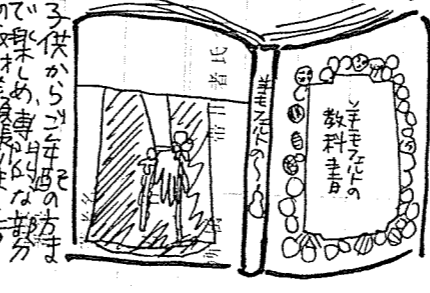 羊毛フェルトの
教科書
羊毛フェルトの〜
子供からご年配の方ま
で楽しめ、専門的な部分